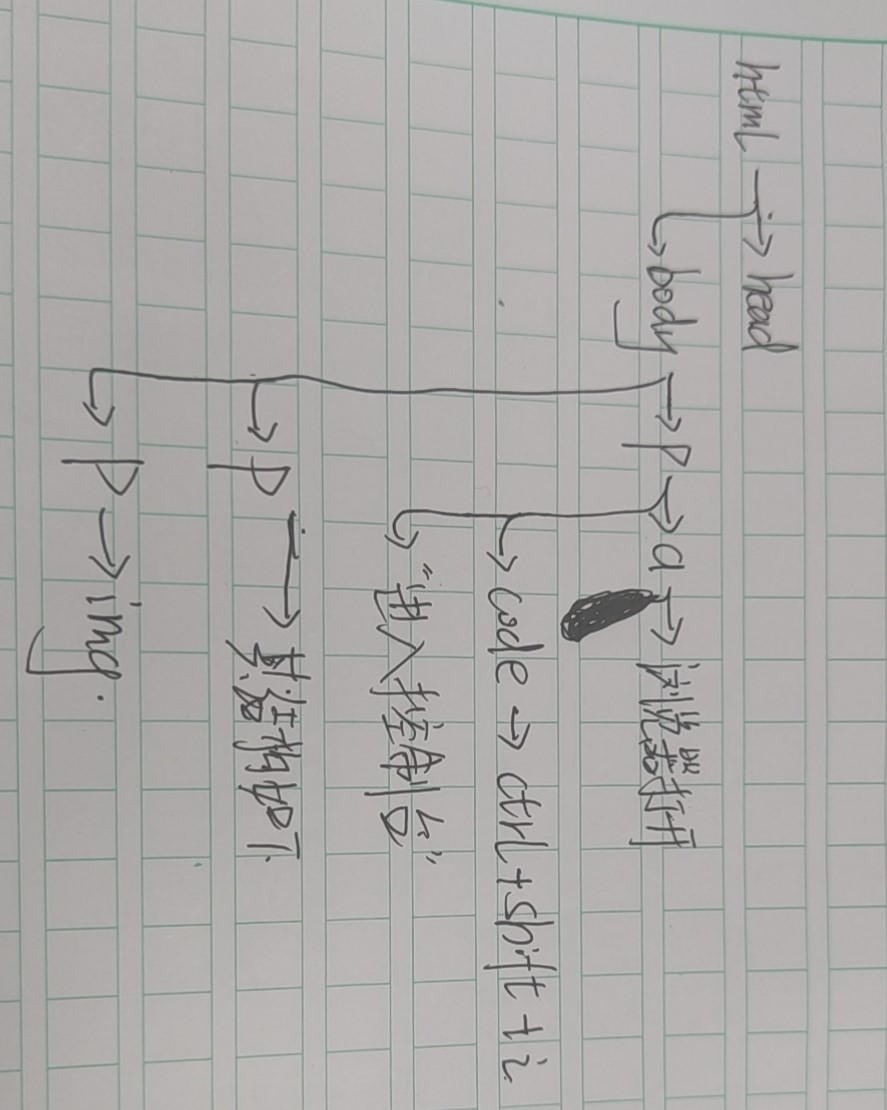 html → head
→ body → p → a → 浏览器打开
→ code → ctrl+shift+i
→ "进入控制台"
→ p → 其结构如下
→ p → img.